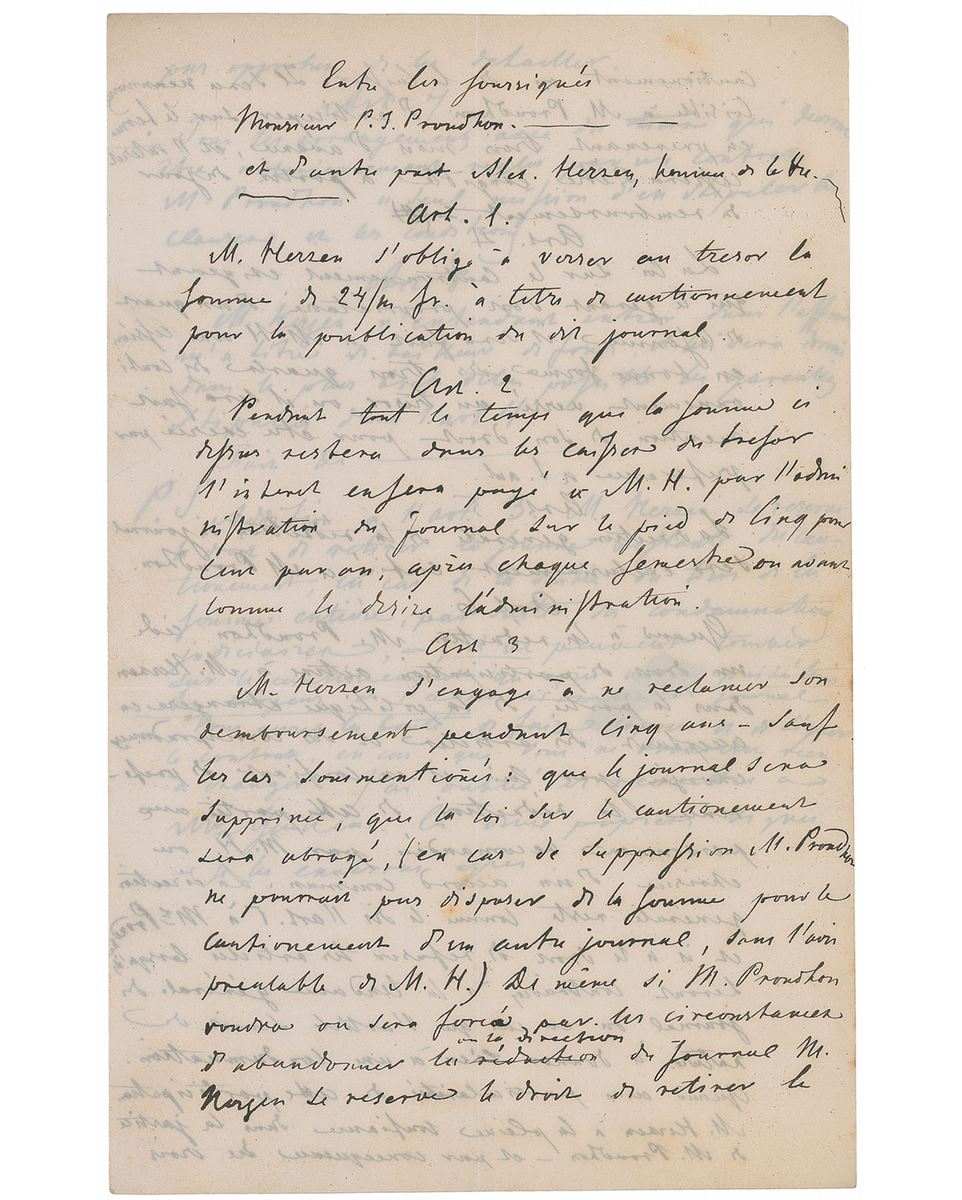 Entre les soussignés
Monsieur P. J. Proudhon. —
et d'autre part Alex. Herzen, homme de lettre.
Art. 1.
M. Herzen s'oblige à verser au tresor la
somme de 24/m fr. à titre de cautionnement
pour la publication du dit journal.
Art. 2
Pendant tout le temps que la somme ci
dessus restera dans les caisses du tresor
l'interet en sera payé a M. H. par l'admi
nistration du Journal sur le pied de cinq pour
cent par an, après chaque semestre ou avant
comme le desire l'administration.
Art 3
M. Herzen s'engage à ne reclamer son
remboursement pendant cinq ans – sauf
les cas sousmentionés : que le journal sera
supprimé, que la loi sur le cautionement
sera abrogé, (en cas de suppression M. Proudhon
ne pourrait pas disposer de la somme pour le
cautionement d'un autre journal, sans l'avis
prealable de M. H.) De même si M. Proudhon
voudra ou sera forcé par les circonstances
ou la direction
d'abandonner la rédaction du Journal M.
Herzen se reserve le droit de retirer le